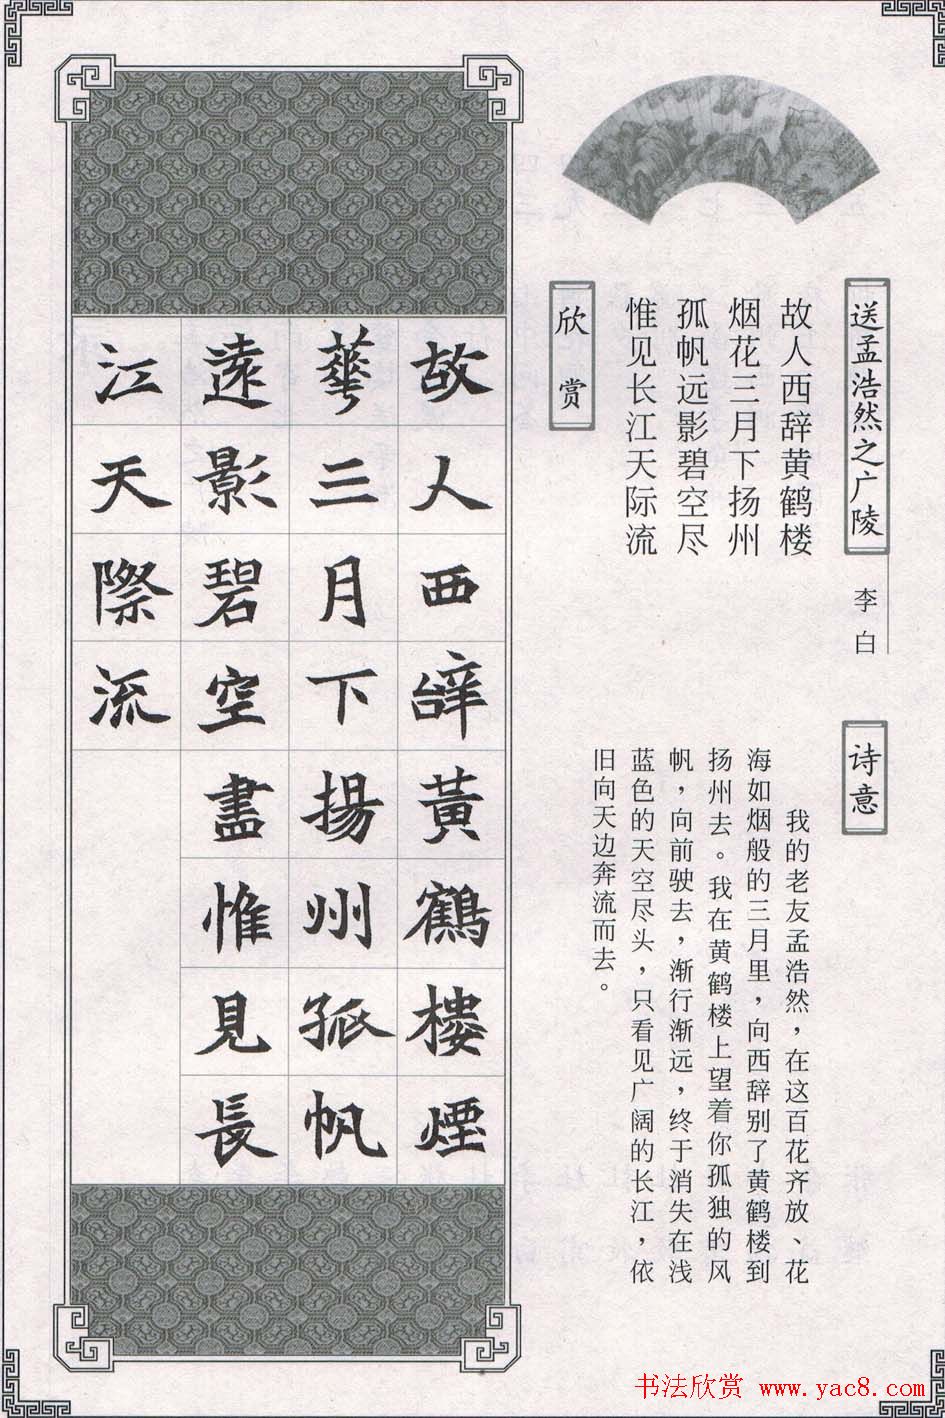 送孟浩然之广陵
李白
故人西辞黄鹤楼
烟花三月下扬州
孤帆远影碧空尽
惟见长江天际流
诗意
我的老友孟浩然，在这百花齐放、花
海如烟般的三月里，向西辞别了黄鹤楼到
扬州去。我在黄鹤楼上望着你孤独的风
帆，向前驶去，渐行渐远，终于消失在浅
蓝色的天空尽头，只看见广阔的长江，依
旧向天边奔流而去。
欣赏
故人西辤黃鶴樓煙
華三月下揚州孤帆
遠影碧空盡惟見長
江天際流
书法欣赏 www.yac8.com